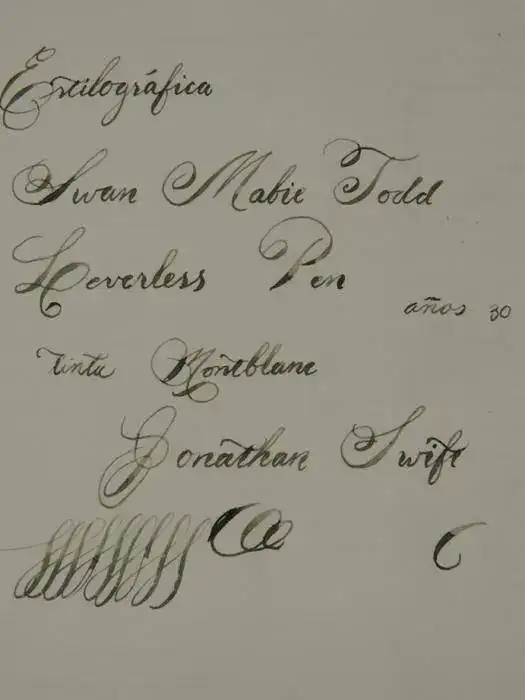 Estilográfica
Swan Mabie Todd
Leverless Pen
años 30
tinta Montblanc
Jonathan Swift